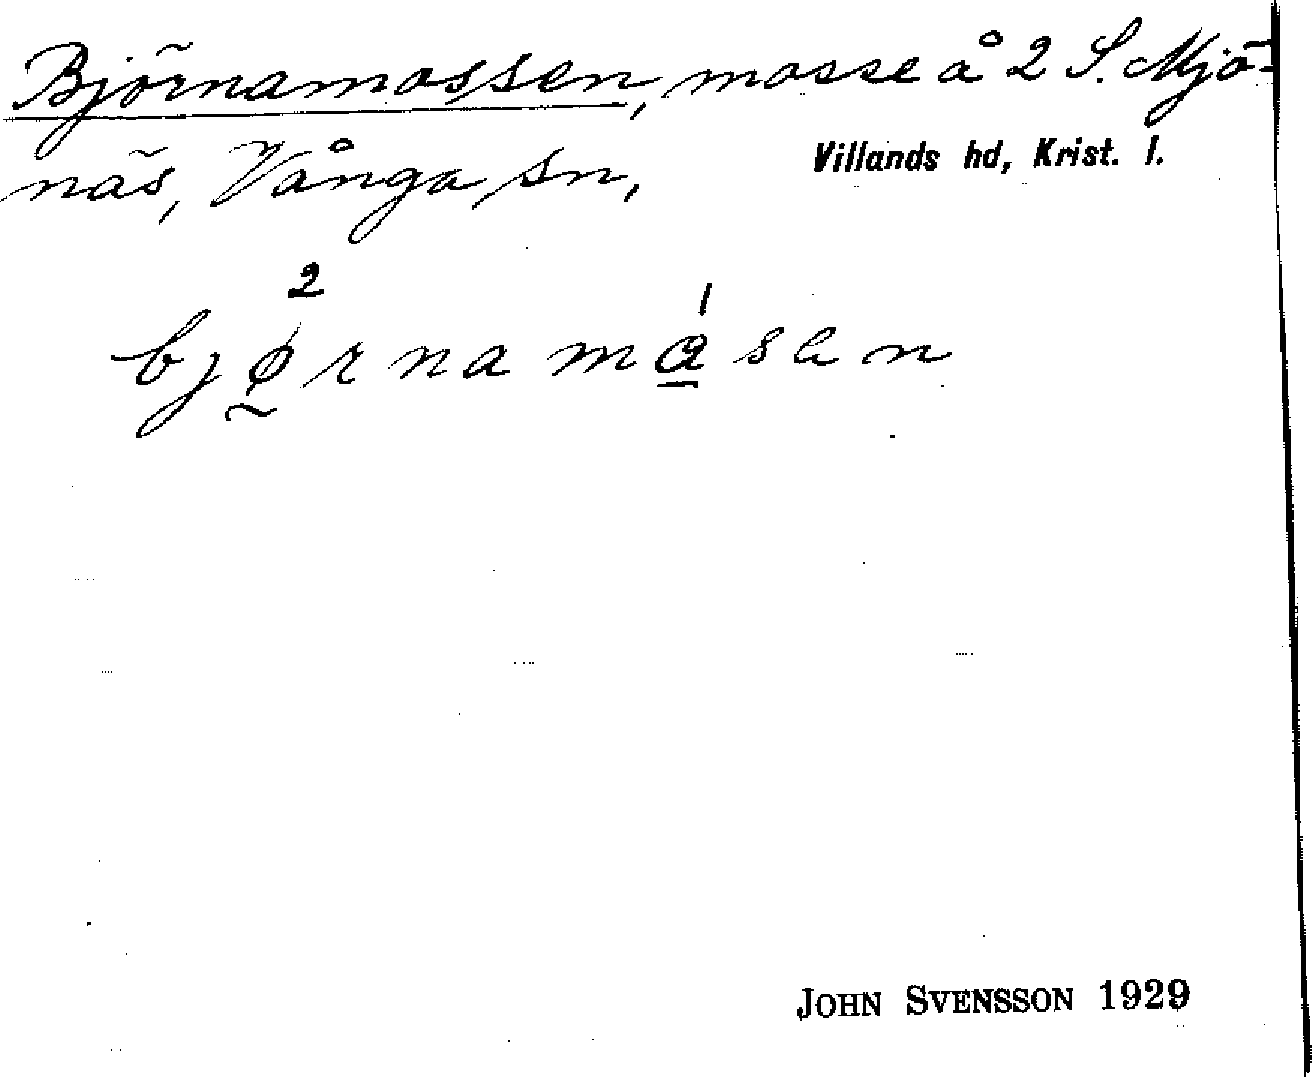 Björnamossen, mosse å 2 S. Mjö-
näs, Vånga sn,
Villands hd, Krist. l.
2 1
bjørnamåsan
JOHN SVENSSON 1929